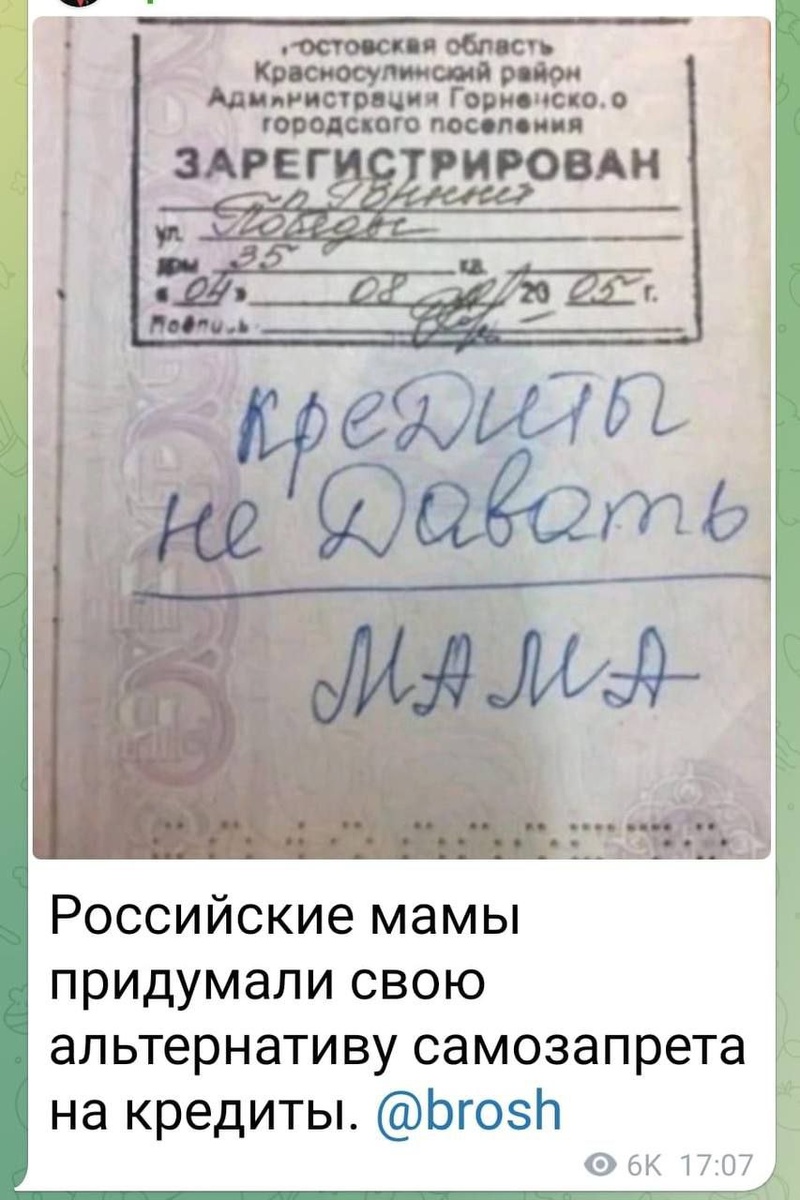 Ростовская область
Красносулинский район
Администрация Горненского
городского поселения
ЗАРЕГИСТРИРОВАН
ул. Победы
дом 35 кв.
«04» 08 2005 г.
Подпись
кредиты
не давать
МАМА
Российские мамы
придумали свою
альтернативу самозапрета
на кредиты. @brosh
6K 17:07